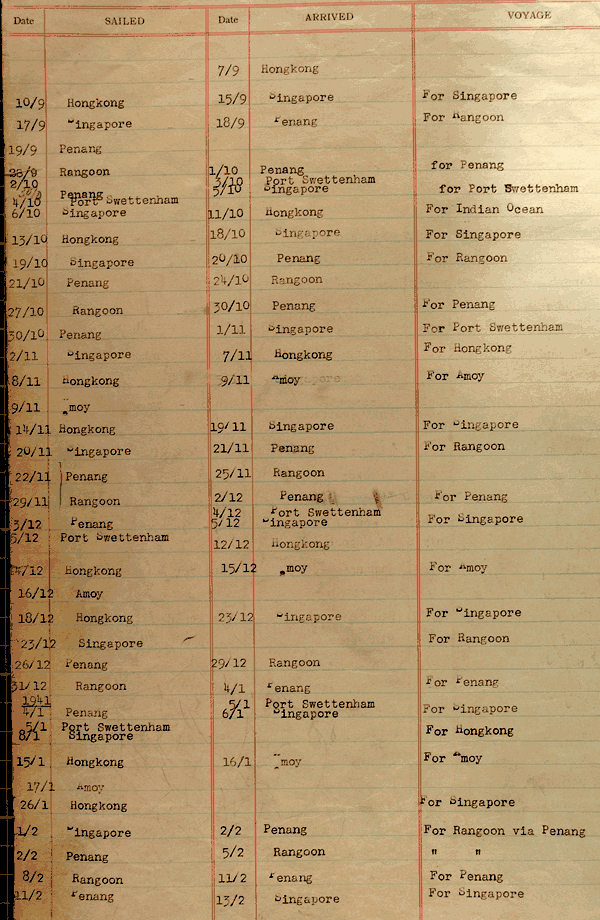 Date SAILED Date ARRIVED VOYAGE
7/9 Hongkong
10/9 Hongkong 15/9 Singapore For Singapore
17/9 Singapore 18/9 Penang For Rangoon
19/9 Penang
28/9 Rangoon 1/10 Penang for Penang
2/10 Penang 3/10 Port Swettenham
4/10 Port Swettenham 5/10 Singapore for Port Swettenham
6/10 Singapore 11/10 Hongkong For Indian Ocean
13/10 Hongkong 18/10 Singapore For Singapore
19/10 Singapore 20/10 Penang For Rangoon
21/10 Penang 24/10 Rangoon
27/10 Rangoon 30/10 Penang For Penang
30/10 Penang 1/11 Singapore For Port Swettenham
2/11 Singapore 7/11 Hongkong For Hongkong
8/11 Hongkong 9/11 Amoy For Amoy
9/11 Amoy
14/11 Hongkong 19/11 Singapore For Singapore
20/11 Singapore 21/11 Penang For Rangoon
22/11 Penang 25/11 Rangoon
29/11 Rangoon 2/12 Penang For Penang
4/12 Port Swettenham
3/12 Penang 5/12 Singapore For Singapore
5/12 Port Swettenham
12/12 Hongkong
14/12 Hongkong 15/12 Amoy For Amoy
16/12 Amoy
18/12 Hongkong 23/12 Singapore For Singapore
23/12 Singapore For Rangoon
26/12 Penang 29/12 Rangoon
31/12 Rangoon 4/1 Penang For Penang
1941 5/1 Port Swettenham
4/1 Penang 6/1 Singapore For Singapore
5/1 Port Swettenham For Hongkong
8/1 Singapore
15/1 Hongkong 16/1 Amoy For Amoy
17/1 Amoy
26/1 Hongkong For Singapore
1/2 Singapore 2/2 Penang For Rangoon via Penang
2/2 Penang 5/2 Rangoon " "
8/2 Rangoon 11/2 Penang For Penang
11/2 Penang 13/2 Singapore For Singapore